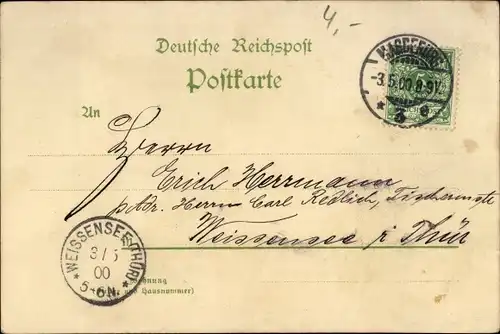 4,-
Deutsche Reichspost
Postkarte
MAGDEBURG
-3.5.00.8-9V.
* 3 e
An
Herrn
Erich Herrmann
p. Adr. Herrn Carl Redlich,
Weissensee i Thür
WEISSENSEE (THÜR)
3/5
00
5-6N.
nung
und Hausnummer)